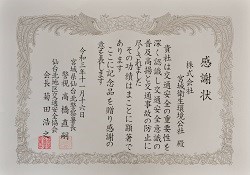 感謝状
株式会社
宮城衛生環境公社 殿
貴社は交通安全の重要性を
深く認識し交通安全意識の
普及高揚と交通事故の防止に
尽くされました
その功績はまことに顕著で
あります
ここに記念品を贈り感謝の
意を表します
令和元年十一月十六日
宮城県仙台北警察署長
警視 高橋直嗣
仙台北地区交通安全協会
会長 菊田浩之